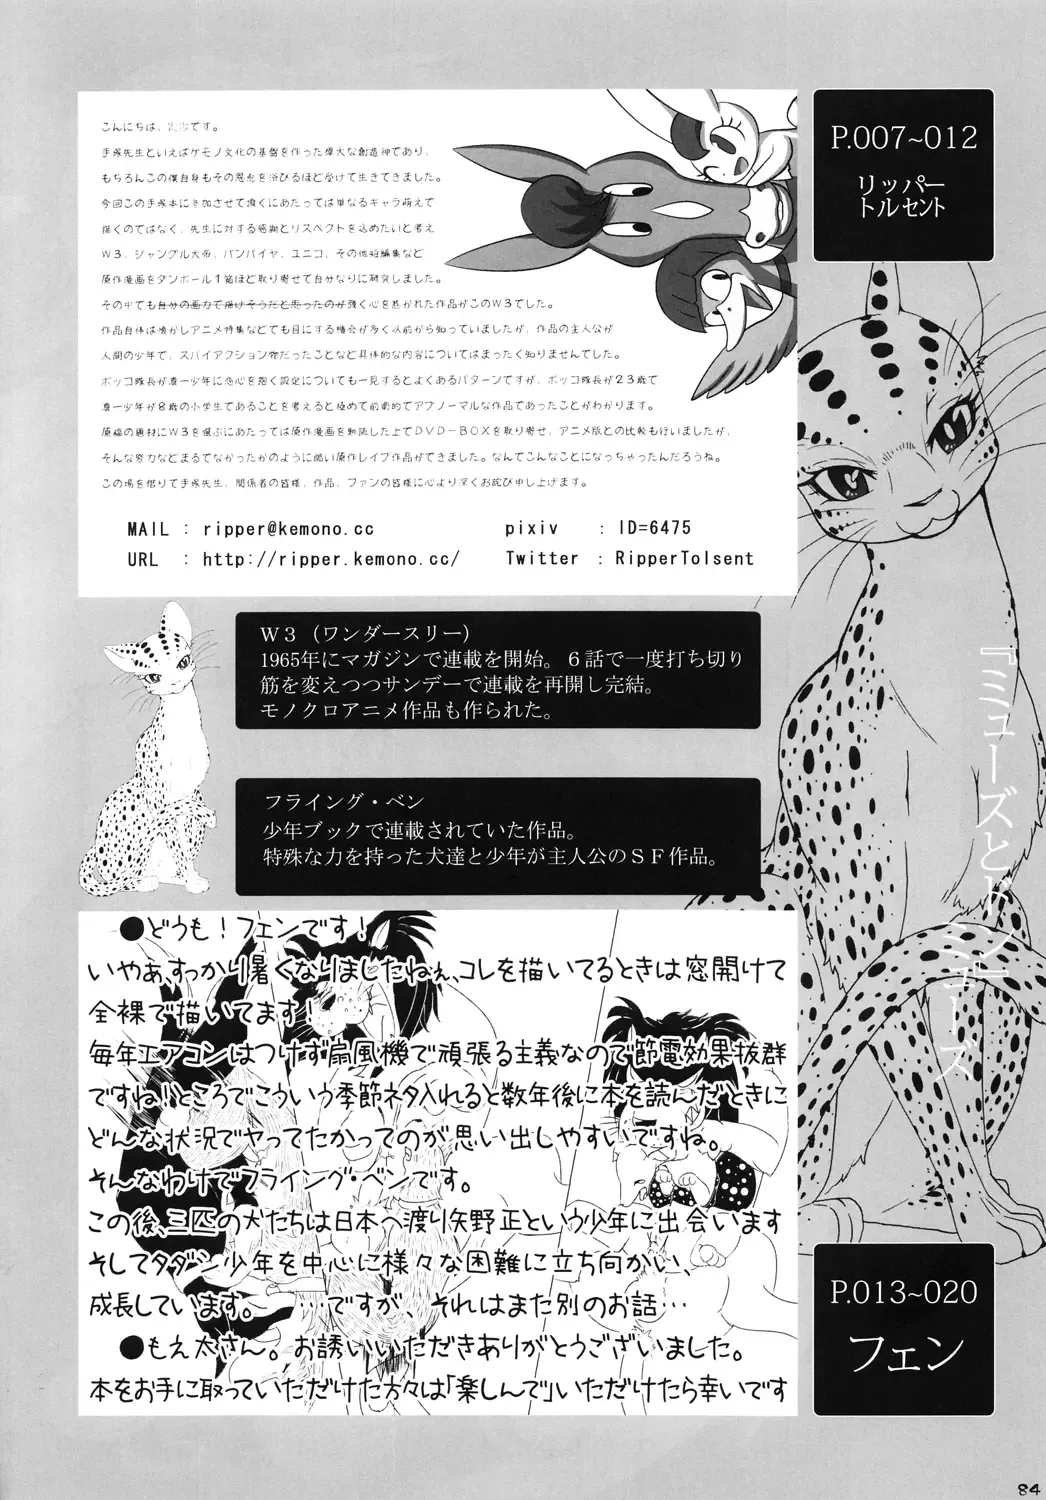 こんにちは、です。
手塚先生といえばケモノ文化の基盤を作った偉大な創造神であり、
もちろんこの僕自身もその恩恵を浴びるほど受けて生きてきました。
今回この手塚本に参加させて頂くにあたっては単なるキャラ萌えで
描くのではなく、先生に対する感謝とリスペクトを込めたいと考え
W3、ジャングル大帝、バンパイヤ、ユニコ、その他短編集など
原作漫画をダンボール1箱ほど取り寄せて自分なりに研究しました。
その中でも自分の画力で描けそうだと思ったのが強く心を惹かれた作品がこのW3でした。
作品自体は懐かしアニメ特集などでも目にする機会が多く以前から知っていましたが、作品の主人公が
人間の少年で、スパイアクション物だったことなど具体的な内容についてはまったく知りませんでした。
ボッコ隊長が真一少年に恋心を抱く設定についても一見するとよくあるパターンですが、ボッコ隊長が23歳で
真一少年が8歳の小学生であることを考えると極めて前衛的でアブノーマルな作品であったことがわかります。
原稿の題材にW3を選ぶにあたっては原作漫画を熟読した上でDVD-BOXを取り寄せ、アニメ版との比較も行いましたが、
そんな努力などまるでなかったかのように酷い原作レイプ作品ができました。なんでこんなことになっちゃったんだろうね。
この場を借りて手塚先生、関係者の皆様、作品、ファンの皆様に心より深くお詫び申し上げます。
MAIL : ripper@kemono.cc
pixiv : ID=6475
URL : http://ripper.kemono.cc/
Twitter : RipperTolsent
P.007~012
リッパー
トルセント
W3（ワンダースリー）
1965年にマガジンで連載を開始。6話で一度打ち切り
筋を変えつつサンデーで連載を再開し完結。
モノクロアニメ作品も作られた。
フライング・ベン
少年ブックで連載されていた作品。
特殊な力を持った犬達と少年が主人公のSF作品。
『ミューズとドン』
ミューズ
●どうも！フェンです！
いやぁ、すっかり暑くなりましたねぇ、コレを描いてるときは窓開けて
全裸で描いてます！
毎年エアコンはつけず扇風機で頑張る主義なので節電効果抜群
ですね！ところでこういう季節ネタ入れると数年後に本を読んだときに
どんな状況でヤってたかってのが思い出しやすいですね。
そんなわけでフライング・ベンです。
この後、三匹の犬たちは日本へ渡り矢野正という少年に出会います
そしてタダシ少年を中心に様々な困難に立ち向かい、
成長しています。 …ですが、それはまた別のお話…
●もえ太さん。お誘いいただきありがとうございました。
本をお手に取っていただけた方々は「楽しんで」いただけたら幸いです
P.013~020
フェン
84